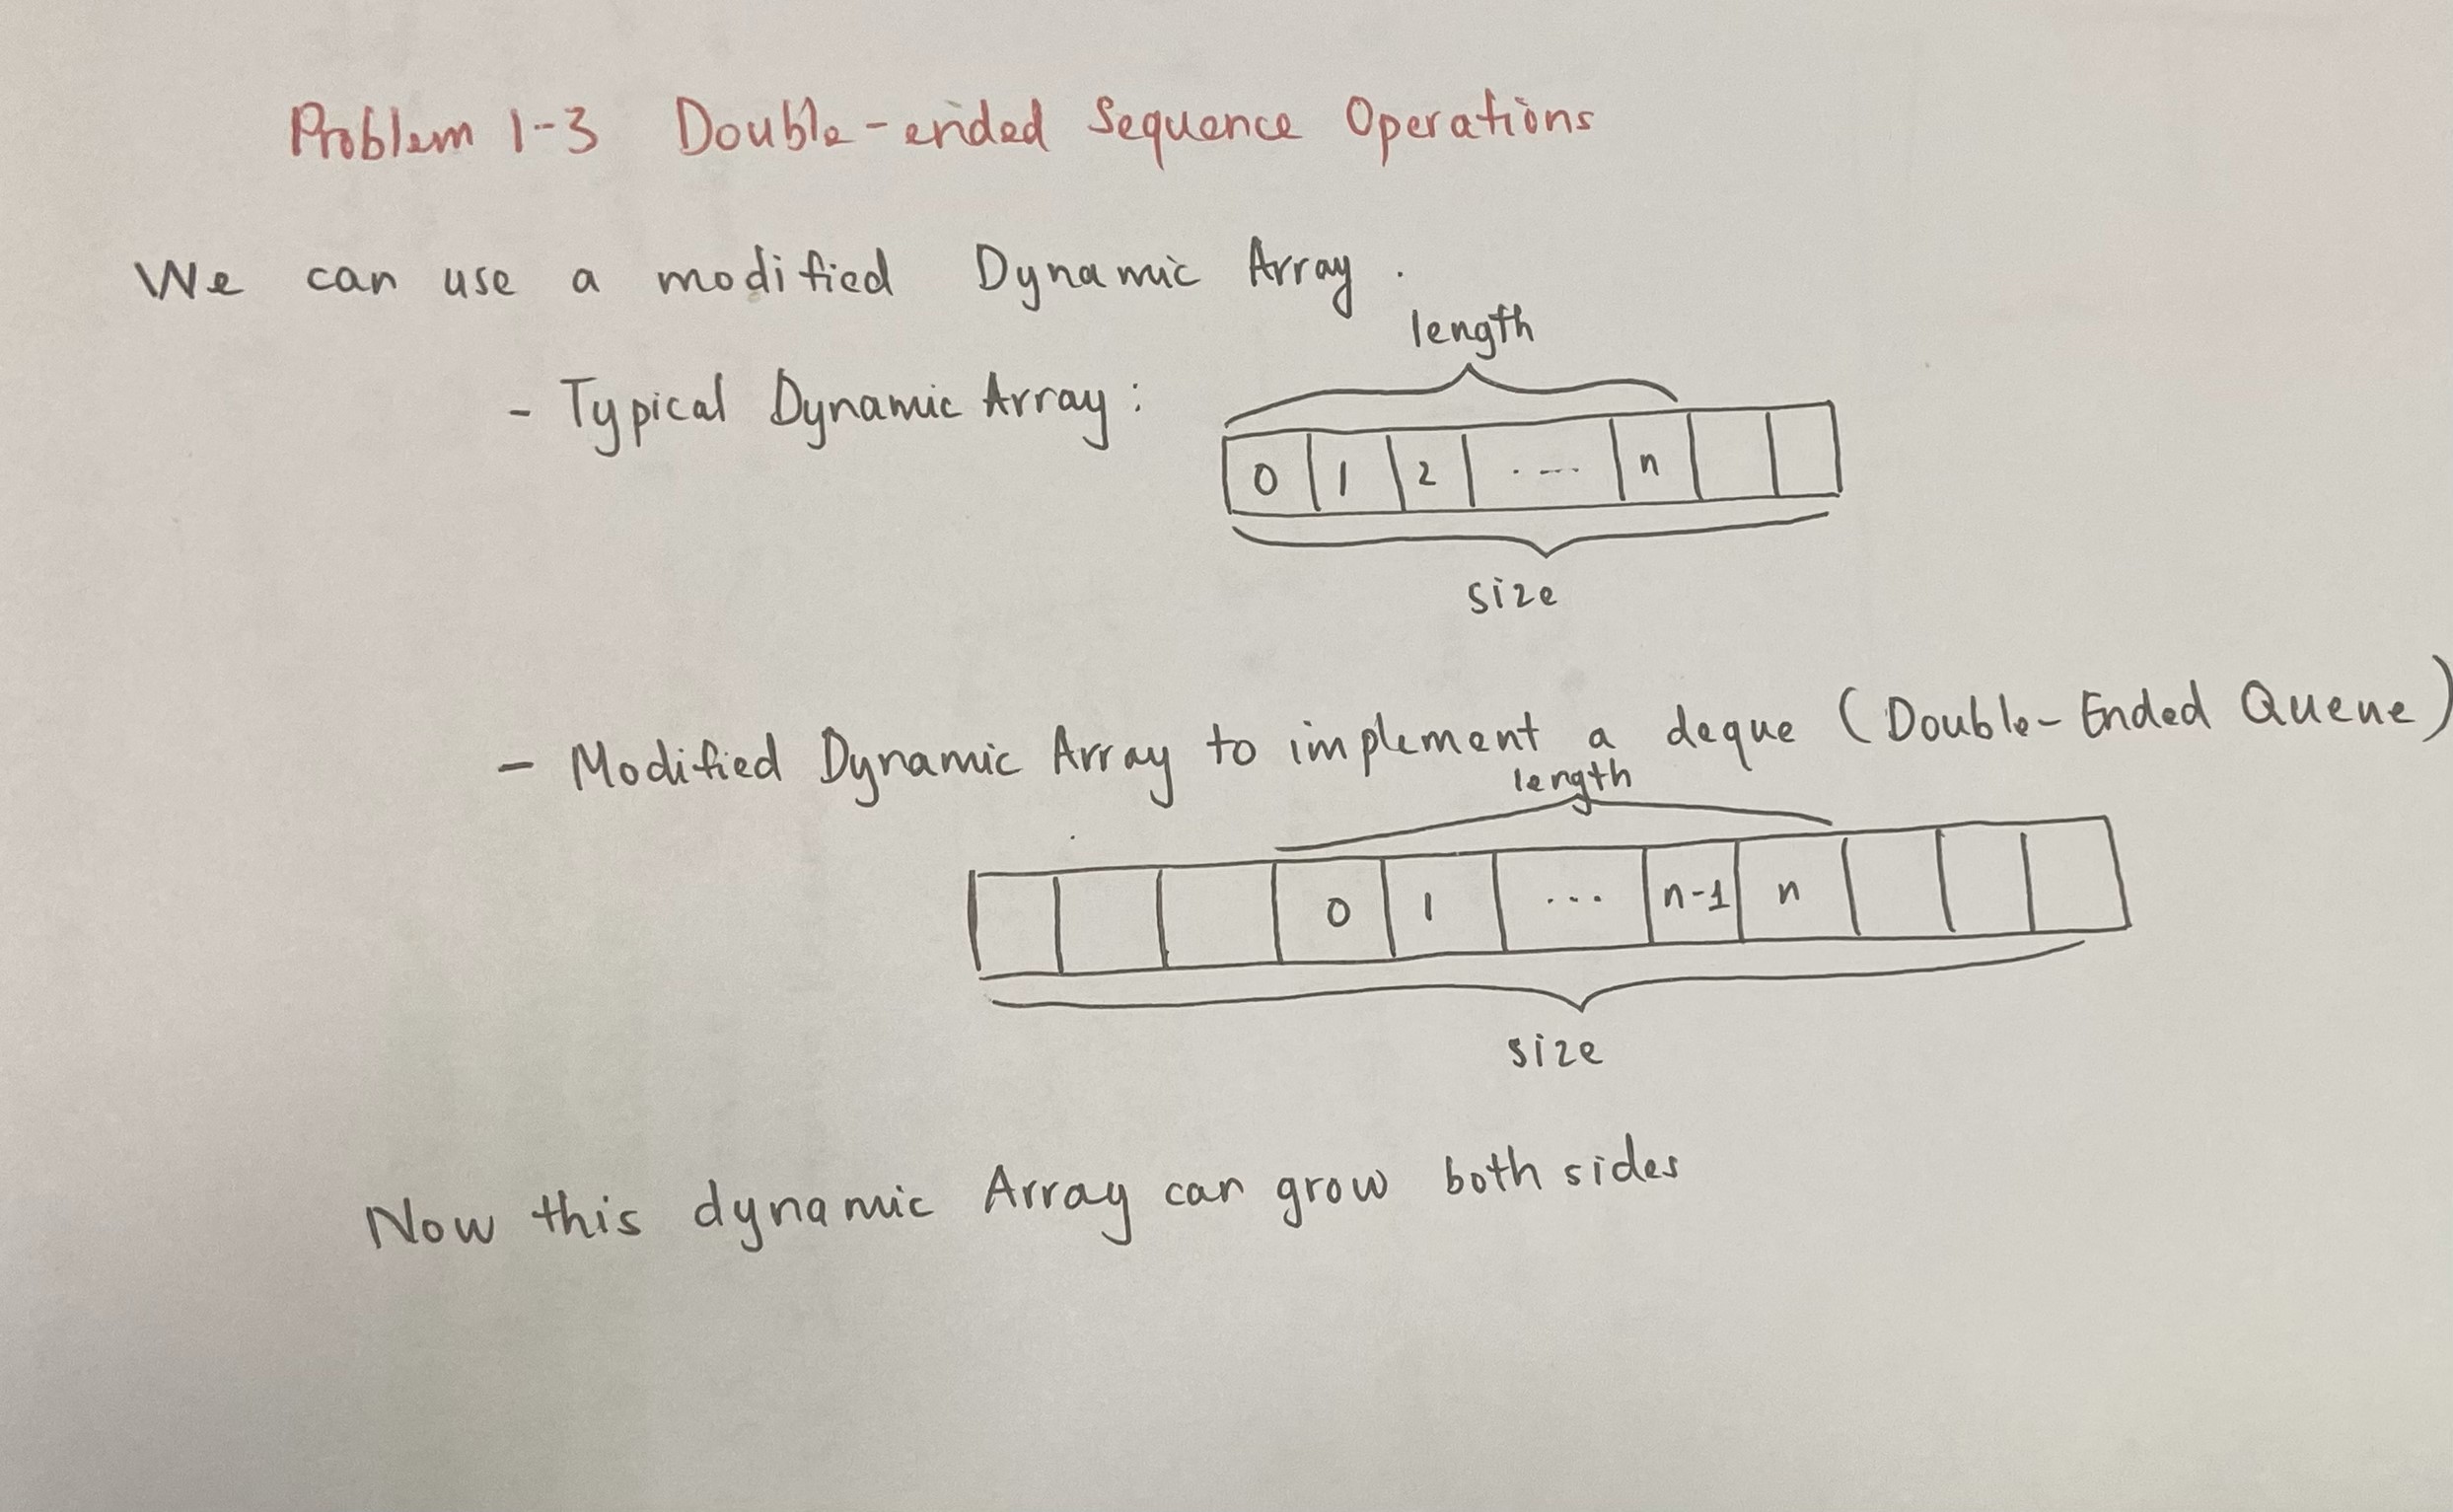 Problem 1-3 Double-ended Sequence Operations
We can use a modified Dynamic Array.
length
- Typical Dynamic Array:
0 1 2 .... n
size
- Modified Dynamic Array to implement a deque (Double-Ended Queue)
length
0 1 ... n-1 n
size
Now this dynamic Array can grow both sides